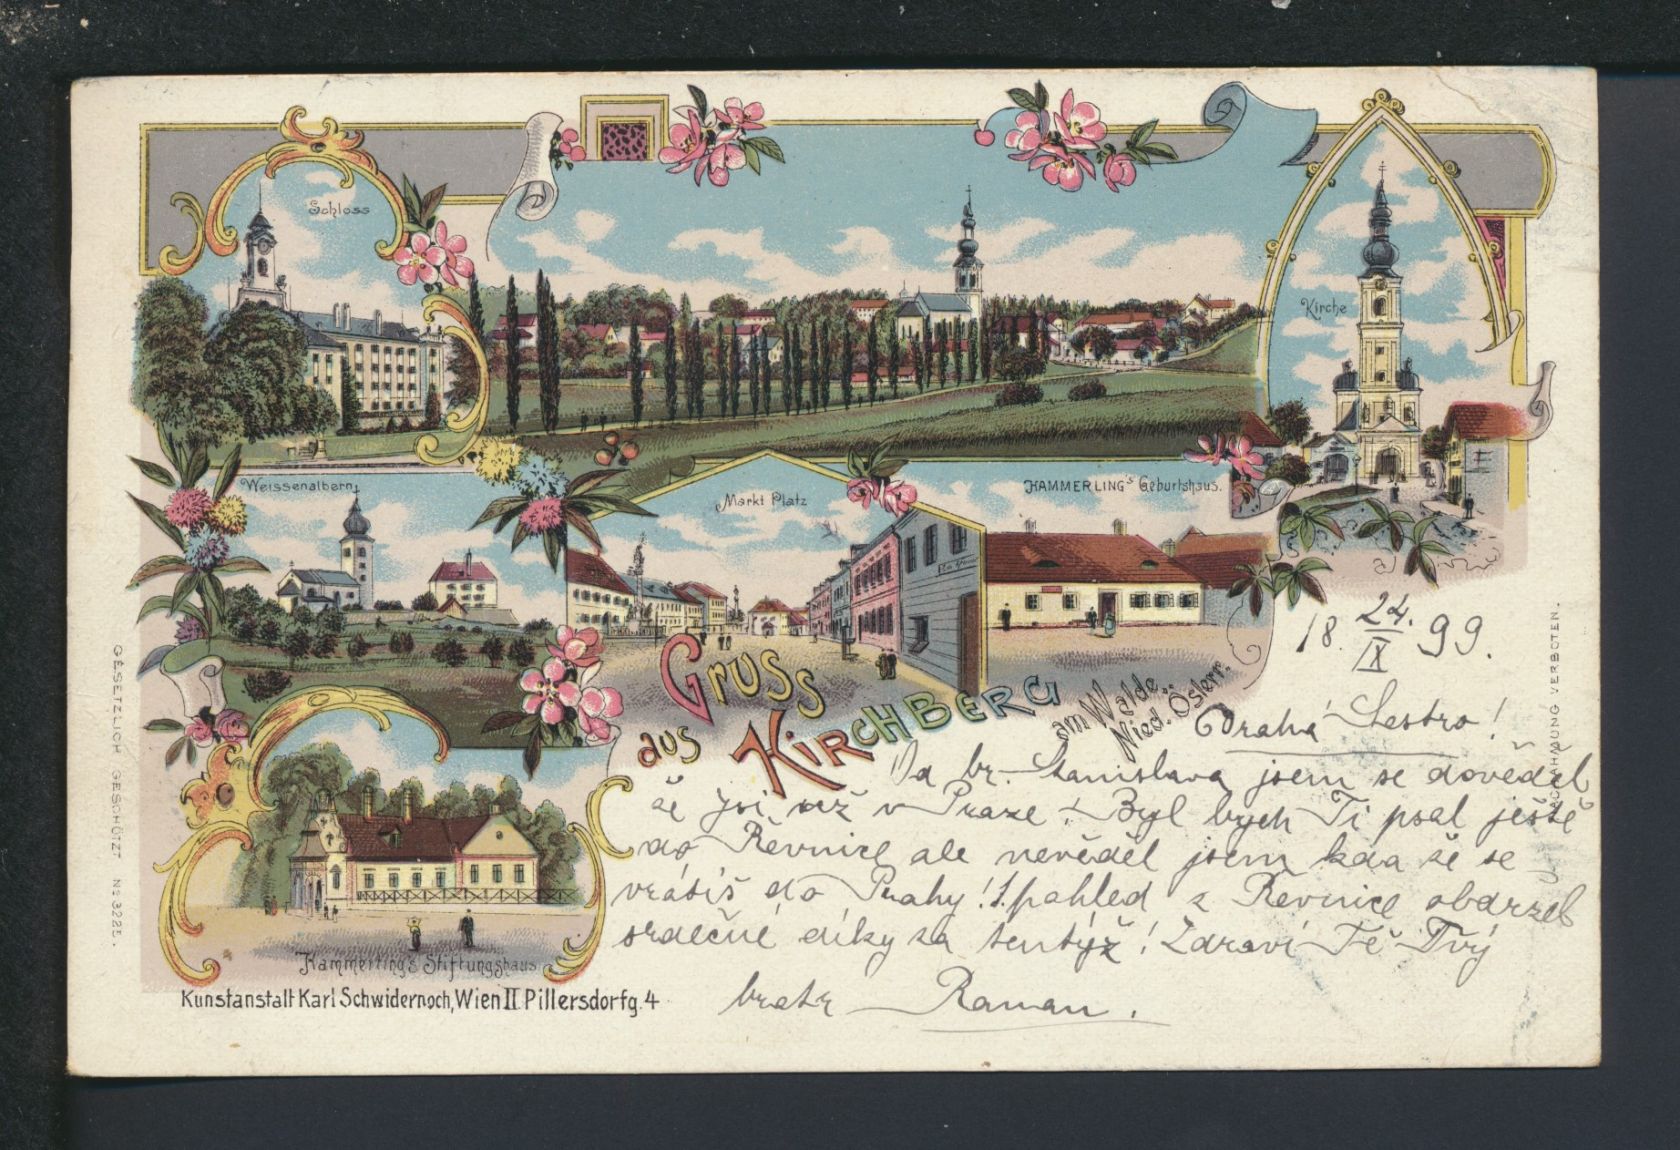 Schloss
Kirche
Weissenalbern
Markt Platz
HAMMERLING's Geburtshaus.
Gruss
aus KIRCHBERG
am Walde
Nied. Österr.
Hammerling's Stiftungshaus
Kunstanstalt Karl Schwidernoch, Wien II. Pillersdorfg. 4
GESETZLICH GESCHÜTZT No 3221.
NACHAHMUNG VERBOTEN.
18 24./IX 99.
Drahá Sestro!
Od br. Stanislava jsem se dověděl
že jsi už v Praze! Byl bych Ti psal ještě
do Řevnice ale nevěděl jsem kda že se
vrátíš do Prahy! 1. pohled z Řevnice obdržel
srdečné díky za tentýž! Zdraví Tě Tvůj
bratr Roman.